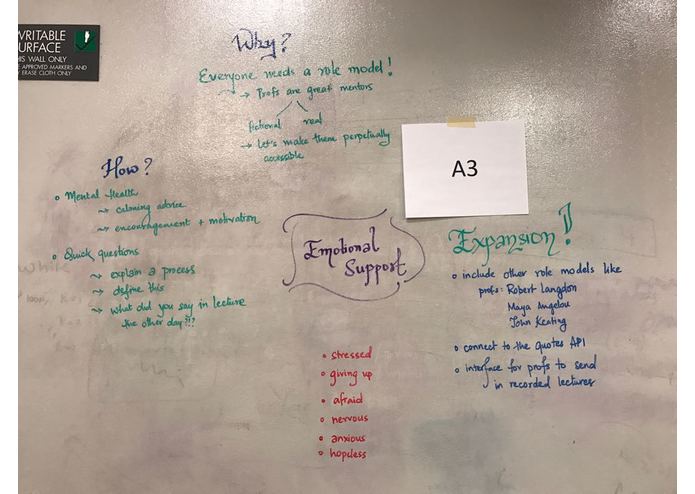 WRITABLE
SURFACE
THIS WALL ONLY
APPROVED MARKERS AND
ERASE CLOTH ONLY
Why?
Everyone needs a role model!
→ Profs are great mentors
fictional real
→ Let's make them perpetually
accessible
A3
How?
• Mental Health
→ calming advice
→ encouragement + motivation
• Quick questions
→ explain a process
→ define this
→ what did you say in lecture
the other day?!?
Emotional
Support
Expansion!
• include other role models like
profs: Robert Langdon
Maya Angelou
John Keating
• connect to the Quotes API
• interface for profs to send
in recorded lectures
• stressed
• giving up
• afraid
• nervous
• anxious
• hopless